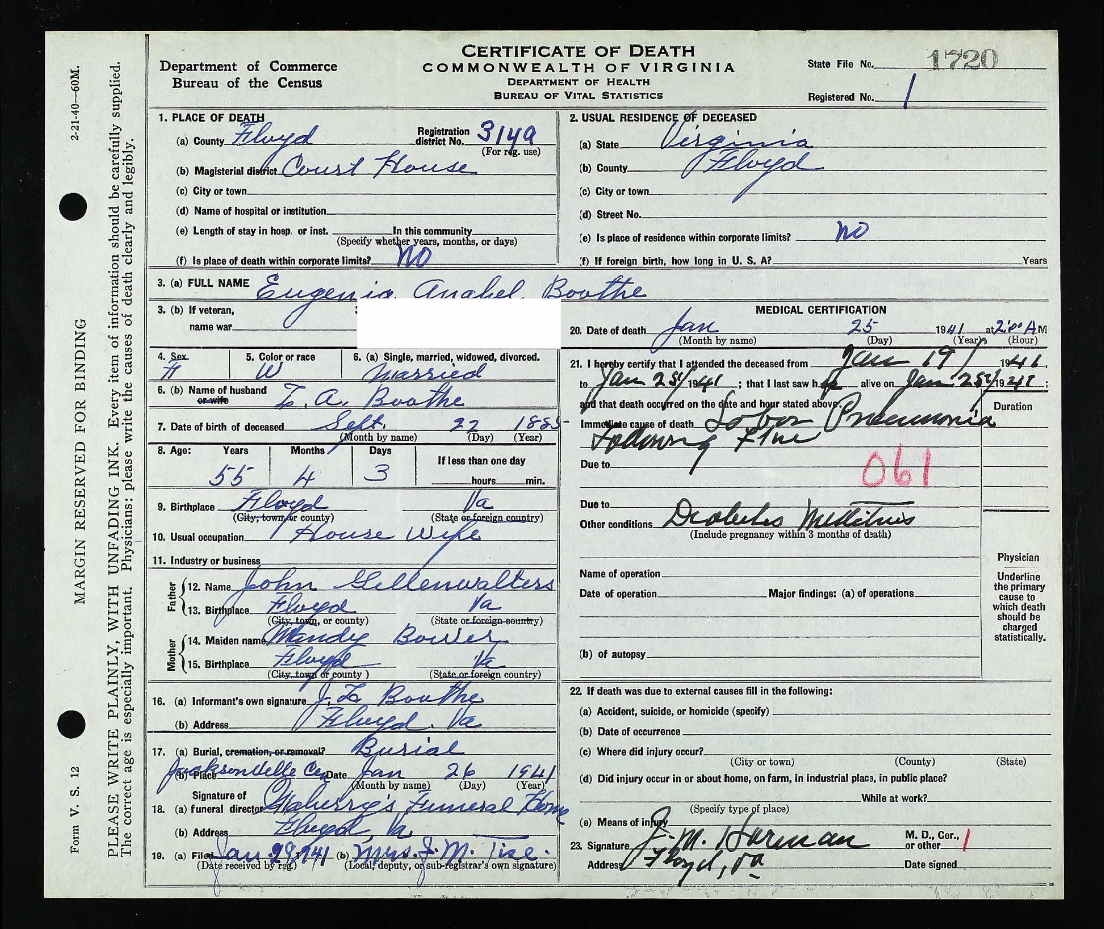 CERTIFICATE OF DEATH
COMMONWEALTH OF VIRGINIA
DEPARTMENT OF HEALTH
BUREAU OF VITAL STATISTICS
Department of Commerce
Bureau of the Census
State File No. 1720
Registered No. 1
2-21-40—60M.
MARGIN RESERVED FOR BINDING
Form V. S. 12
PLEASE WRITE PLAINLY, WITH UNFADING INK. Every item of information should be carefully supplied.
The correct age is especially important. Physicians: please write the causes of death clearly and legibly.
1. PLACE OF DEATH
(a) County Floyd Registration district No. 3149
(For reg. use)
(b) Magisterial district Court House
(c) City or town
(d) Name of hospital or institution
(e) Length of stay in hosp. or inst. In this community
(Specify whether years, months, or days)
(f) Is place of death within corporate limits? NO
2. USUAL RESIDENCE OF DECEASED
(a) State Virginia
(b) County Floyd
(c) City or town
(d) Street No.
(e) Is place of residence within corporate limits? NO
(f) If foreign birth, how long in U. S. A? Years
3. (a) FULL NAME Eugenia Anabel Boothe
3. (b) If veteran,
name war
4. Sex F
5. Color or race W
6. (a) Single, married, widowed, divorced. Married
6. (b) Name of husband or wife Boothe
7. Date of birth of deceased Sept. 22 1885
(Month by name) (Day) (Year)
8. Age: Years Months Days If less than one day
55 4 3 hours min.
9. Birthplace Floyd Va
(City, town, or county) (State or foreign country)
10. Usual occupation House Wife
11. Industry or business
Father
12. Name John Gillenwalters
13. Birthplace Floyd Va
(City, town, or county) (State or foreign country)
Mother
14. Maiden name Mandy Bower
15. Birthplace Floyd Va
(City, town or county) (State or foreign country)
16. (a) Informant's own signature Boothe
(b) Address Floyd, Va
17. (a) Burial, cremation, or removal? Burial
(b) Place Jacksonville Cem Date Jan 26 1941
(Month by name) (Day) (Year)
18. Signature of
(a) funeral director Funeral Home
(b) Address Floyd, Va.
19. (a) Filed Jan 29, 1941 (b) Mrs. J. M. Tise.
(Date received by reg.) (Local, deputy, or sub-registrar's own signature)
MEDICAL CERTIFICATION
20. Date of death Jan 25 1941 at 2:00 A M
(Month by name) (Day) (Year) (Hour)
21. I hereby certify that I attended the deceased from Jan 19 1941
to Jan 25 1941; that I last saw h alive on Jan 25 1941;
and that death occurred on the date and hour stated above.
Duration
Immediate cause of death Lobar Pneumonia
following Flue
Due to
061
Due to
Other conditions Diabetes Mellitus
(Include pregnancy within 3 months of death)
Name of operation
Date of operation Major findings: (a) of operations
(b) of autopsy
Physician
Underline
the primary
cause to
which death
should be
charged
statistically.
22. If death was due to external causes fill in the following:
(a) Accident, suicide, or homicide (specify)
(b) Date of occurrence
(c) Where did injury occur?
(City or town) (County) (State)
(d) Did injury occur in or about home, on farm, in industrial place, in public place?
While at work?
(Specify type of place)
(e) Means of injury
23. Signature J. M. Harman M. D., Cor., or other 1
Address Floyd, Va Date signed